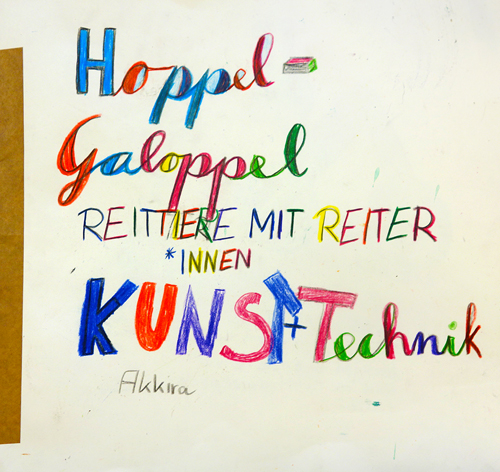 Hoppel-
Galoppel
REITTIERE MIT REITER
*INNEN
KUNST+Technik
Akkira